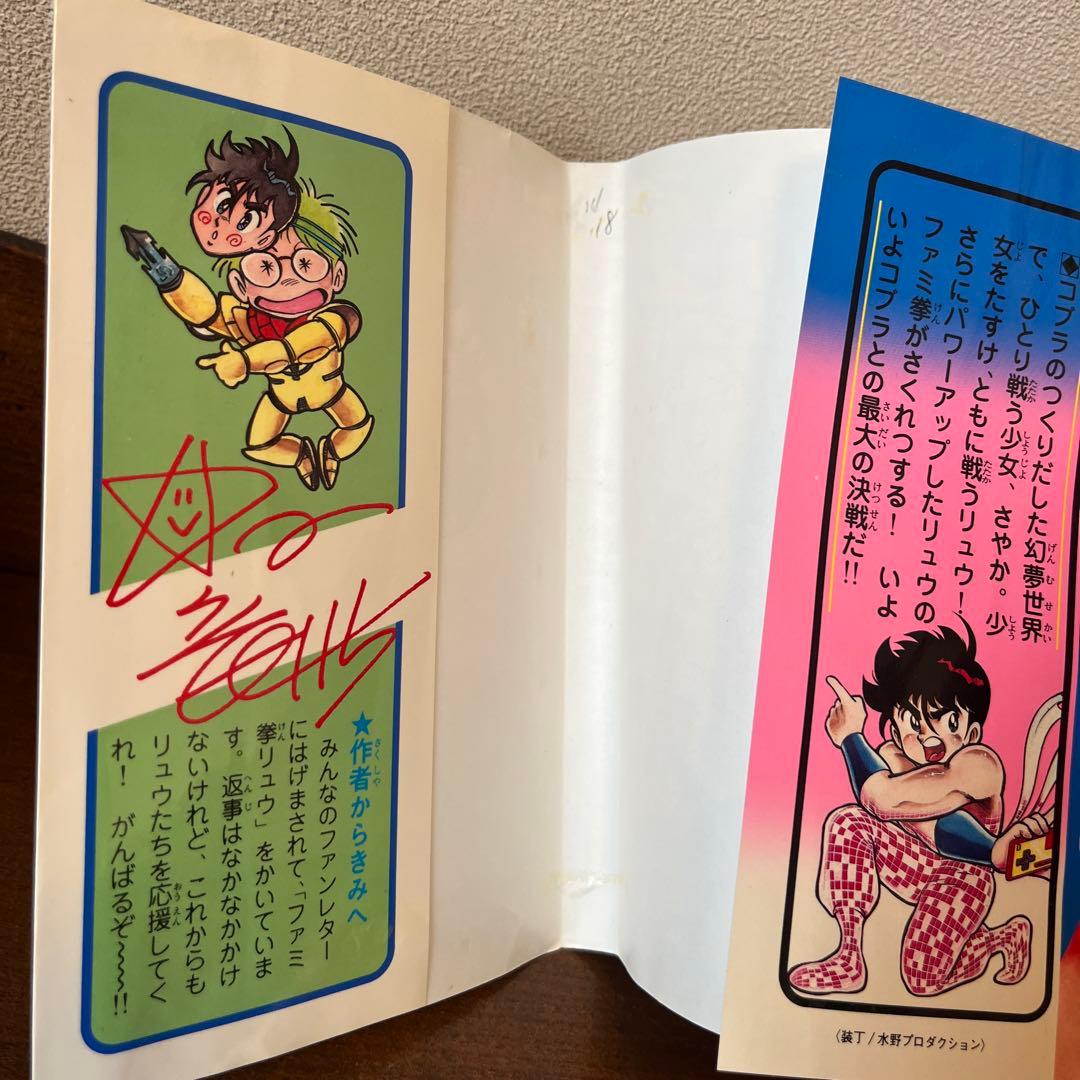 ◆コブラのつくりだした幻夢世界
で、ひとり戦う少女、さやか。少
女をたすけ、ともに戦うリュウ!
さらにパワーアップしたリュウの
ファミ拳がさくれつする! いよ
いよコブラとの最大の決戦だ!!
〈装丁/水野プロダクション〉
18
★作者からきみへ
みんなのファンレター
にはげまされて、「ファミ
拳リュウ」をかいていま
す。返事はなかなかかけ
ないけれど、これからも
リュウたちを応援してく
れ! がんばるぞ〜〜〜!!